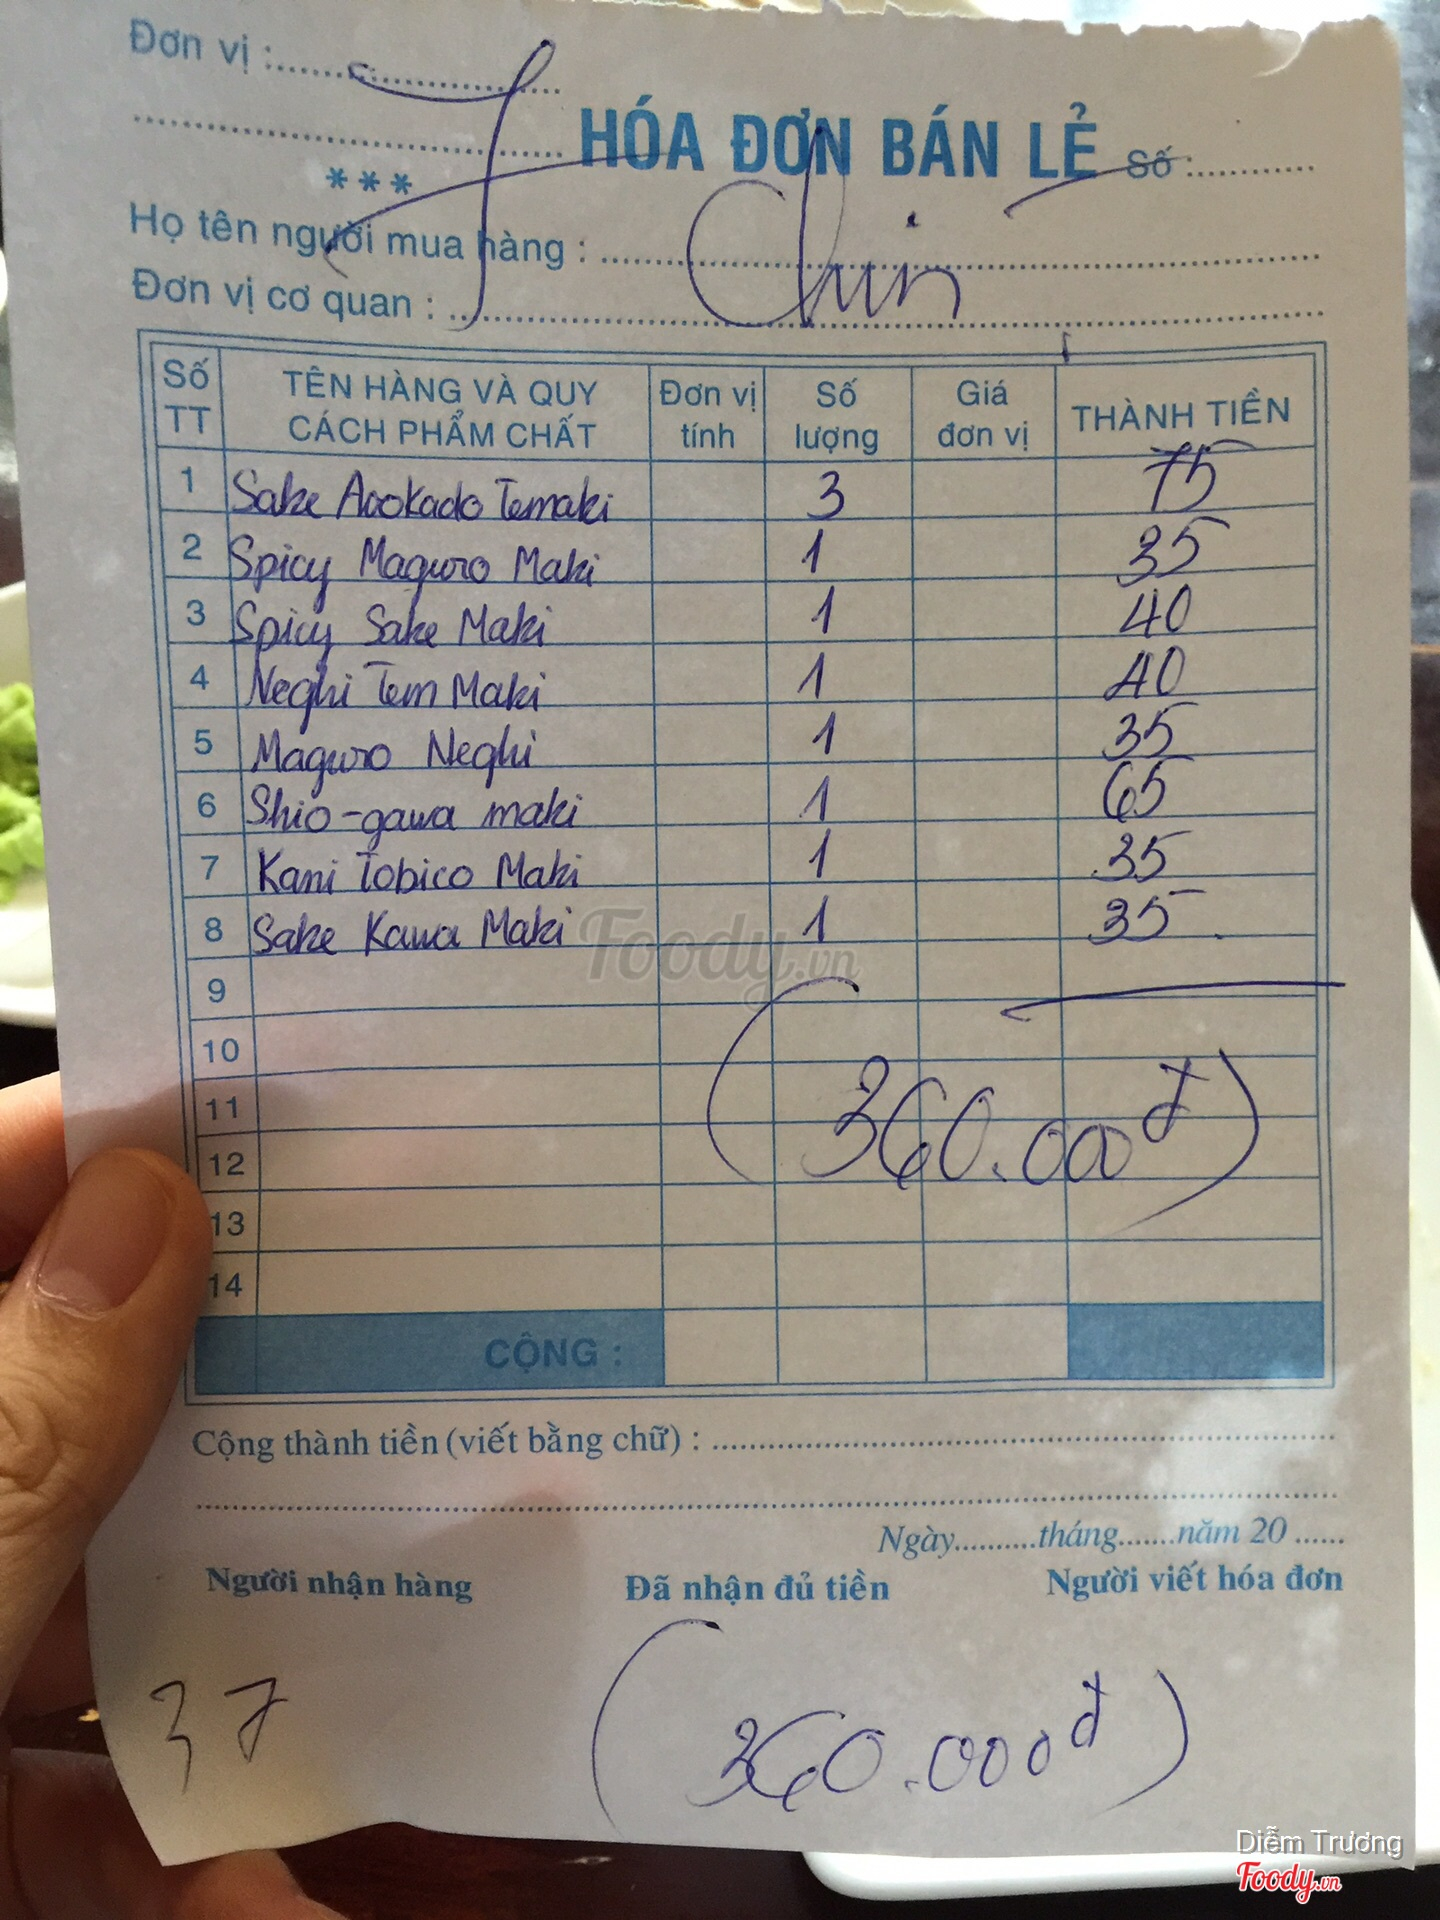 Đơn vị :
***
HÓA ĐƠN BÁN LẺ Số :
Họ tên người mua hàng : Chin
Đơn vị cơ quan :
Số TT TÊN HÀNG VÀ QUY CÁCH PHẨM CHẤT Đơn vị tính Số lượng Giá đơn vị THÀNH TIỀN
1 Sake Avokado Temaki 3 75
2 Spicy Maguro Maki 1 35
3 Spicy Sake Maki 1 40
4 Neghi Tem Maki 1 40
5 Maguro Neghi 1 35
6 Shio-gawa maki 1 65
7 Kani Tobico Maki 1 35
8 Sake Kawa Maki 1 35
Foody.vn
9
10
11
(360.000đ)
12
13
14
CỘNG :
Cộng thành tiền (viết bằng chữ) :
Ngày..........tháng.......năm 20 ......
Người nhận hàng Đã nhận đủ tiền Người viết hóa đơn
37 (360.000đ)
Diễm Trương
Foody.vn